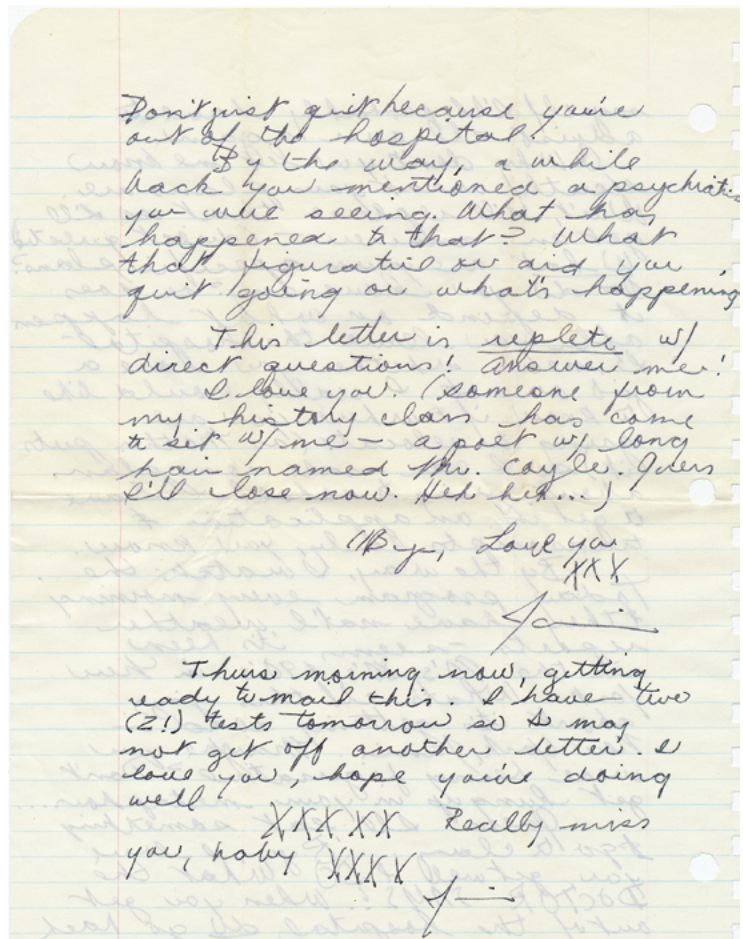 Don't just quit because you're
out of the hospital.
By the way, a while
back you mentioned a psychiatris
you were seeing. What has
happened to that? What
that figurative or did you
quit going or what's happening
This letter is replete w/
direct questions! Answer me!
I love you. (someone from
my history class has come
to sit w/me – a poet w/ long
hair named Mr. Coyle. Guess
I'll close now. Heh heh...)
'Bye, Love you
XXX
Thurs morning now, getting
ready to mail this. I have two
(2!) tests tomorrow so I may
not get off another letter. I
love you, hope you're doing
well
XXXXX Really miss
you, baby XXXX